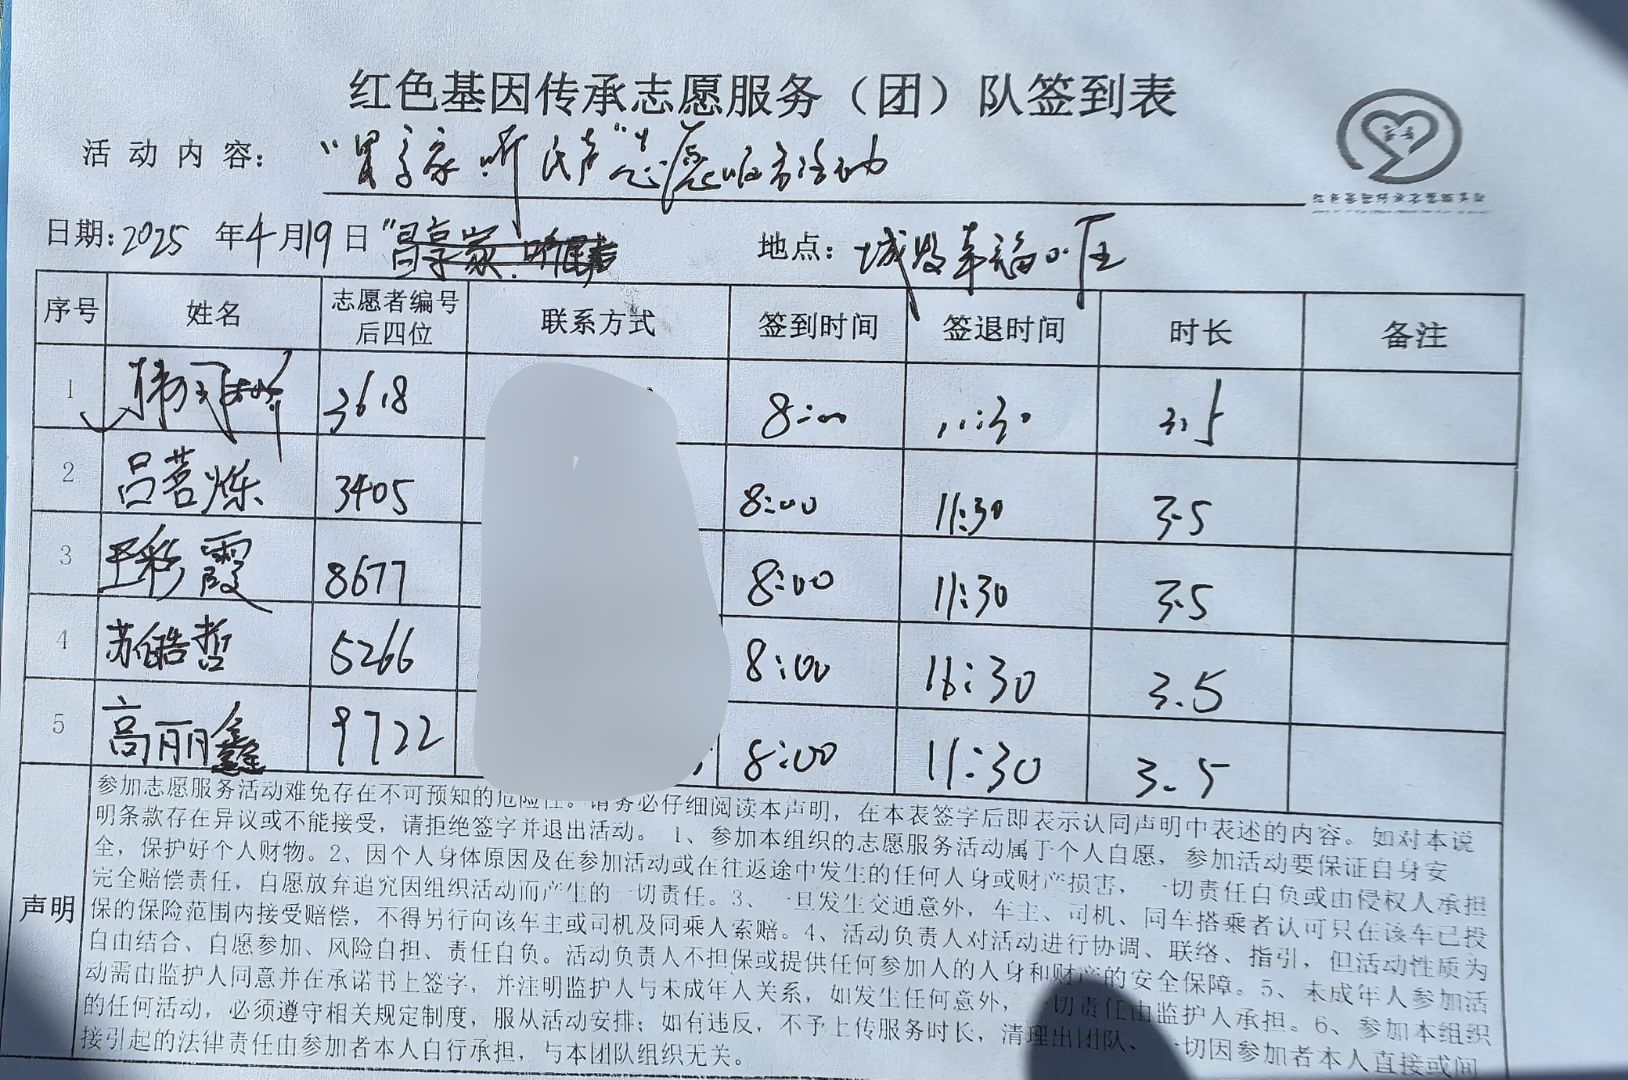 红色基因传承志愿服务（团）队签到表
活动内容： “冒享家 听民声”志愿服务活动
日期：2025年4月19日 地点：城投幸福小区
序号 姓名 志愿者编号后四位 联系方式 签到时间 签退时间 时长 备注
1 韩 3618 8:00 11:30 3.5
2 吕茗烁 3405 8:00 11:30 3.5
3 王彩霞 8677 8:00 11:30 3.5
4 苏皓哲 5266 8:00 11:30 3.5
5 高丽鑫 9722 8:00 11:30 3.5
声明
参加志愿服务活动难免存在不可预知的危险性。请务必仔细阅读本声明，在本表签字后即表示认同声明中表述的内容。如对本说
明条款存在异议或不能接受，请拒绝签字并退出活动。1、参加本组织的志愿服务活动属于个人自愿，参加活动要保证自身安
全，保护好个人财物。2、因个人身体原因及在参加活动或在往返途中发生的任何人身或财产损害，一切责任自负或由侵权人承担
完全赔偿责任，自愿放弃追究因组织活动而产生的一切责任。3、一旦发生交通意外，车主、司机、同车搭乘者认可只在该车已投
保的保险范围内接受赔偿，不得另行向该车主或司机及同乘人索赔。4、活动负责人对活动进行协调、联络、指引，但活动性质为
自由结合、自愿参加、风险自担、责任自负。活动负责人不担保或提供任何参加人的人身和财产的安全保障。5、未成年人参加活
动需由监护人同意并在承诺书上签字，并注明监护人与未成年人关系，如发生任何意外，一切责任由监护人承担。6、参加本组织
的任何活动，必须遵守相关规定制度，服从活动安排；如有违反，不予上传服务时长，清理出团队、一切因参加者本人直接或间
接引起的法律责任由参加者本人自行承担，与本团队组织无关。